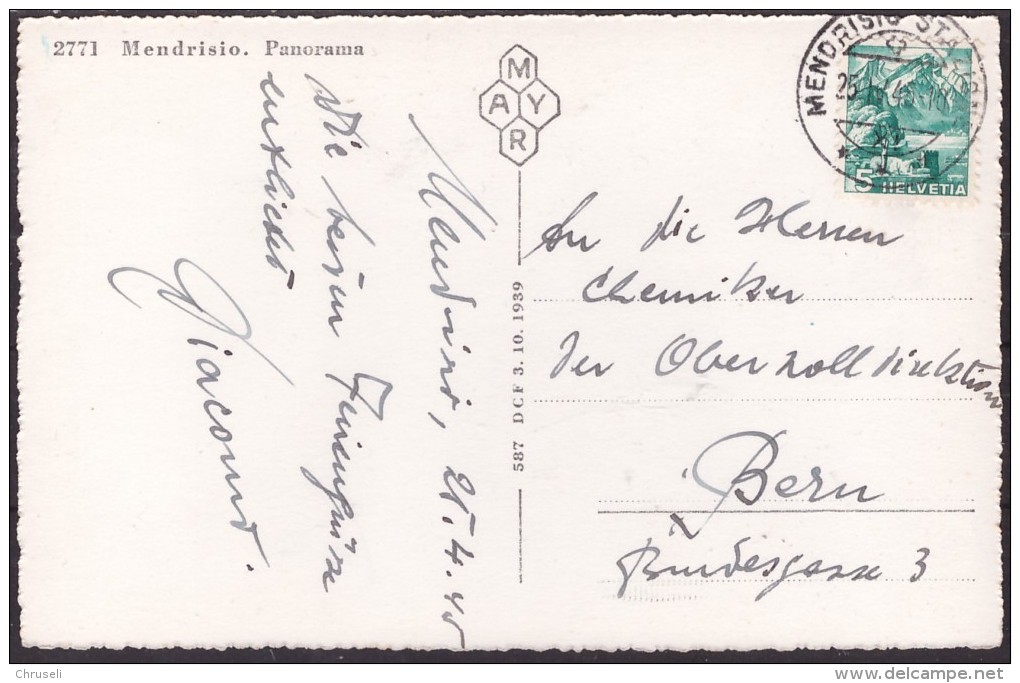 2771 Mendrisio. Panorama
MAYR
MENDRISIO
5 HELVETIA
Mendrisio, 25.4.40
Die besten Feriengrüsse
Giacomo.
587 DCF 3.10.1939
An die Herren
Chemiker
der Oberzolldirektion
Bern
Bundesgasse 3
Chruseli
delcampe.net